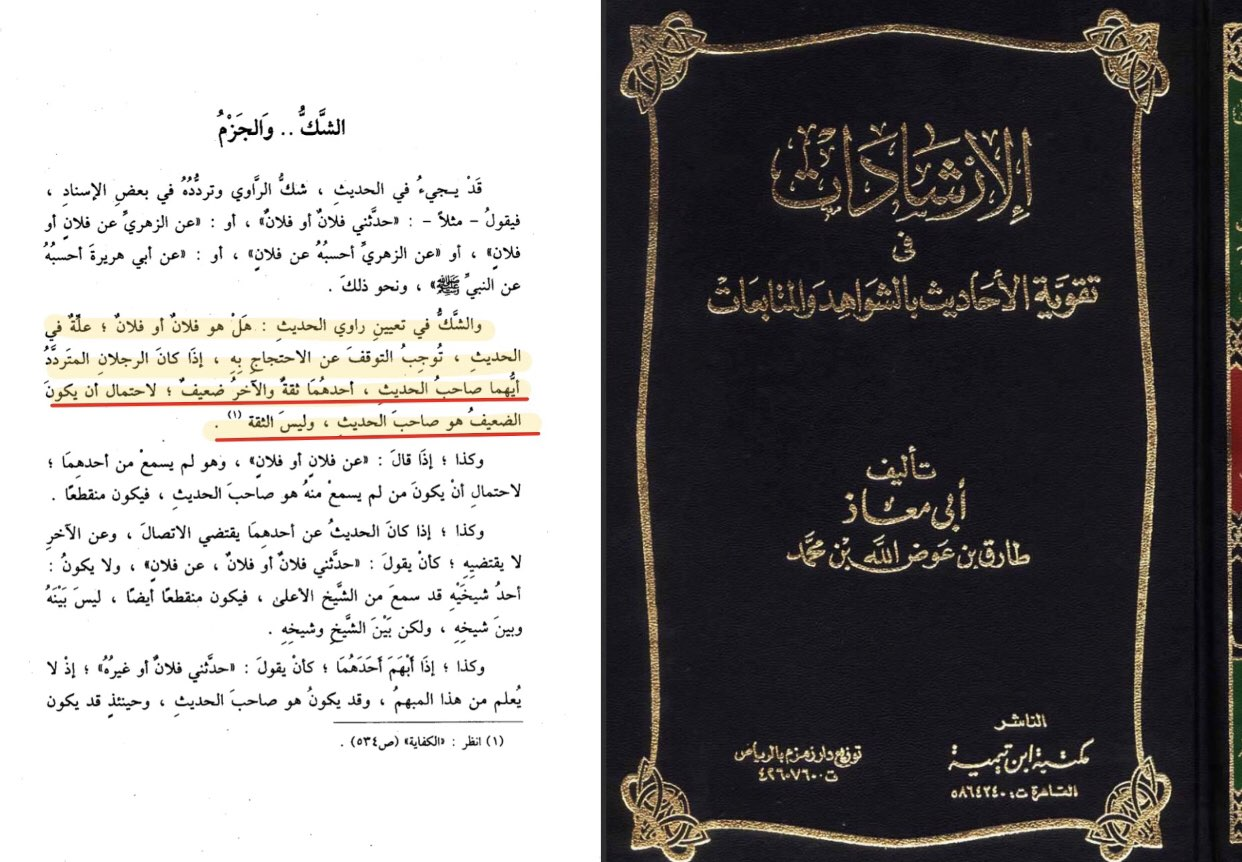 الشَّكُّ .. وَالجَزْمُ
قَدْ يـجيءُ في الحديثِ ، شكُّ الرَّاوي وتردُّدُهُ في بعضِ الإسنادِ ،
فيقولُ – مثلاً – : «حدَّثني فلانٌ أو فلانٌ» ، أو : «عن الزهريِّ عن فلانٍ أو
فلانٍ» ، أو «عن الزهريِّ أحسبُهُ عن فلانٍ» ، أو : «عن أبي هريرةَ أحسبُهُ
عن النبيِّ ﷺ» ، ونحو ذلكَ .
والشَّكُّ في تعيينِ راوي الحديثِ : هَلْ هو فلانٌ أو فلانٌ ؛ علَّةٌ في
الحديثِ ، تُوجِبُ التوقفَ عن الاحتجاجِ بِهِ ، إذَا كانَ الرجلانِ المتَردَّدُ
أيُّهما صاحبُ الحديثِ ، أحدهُمَا ثقةٌ والآخرُ ضعيفٌ ؛ لاحتمال أن يكونَ
الضعيفُ هو صاحبَ الحديثِ ، وليسَ الثقة (١) .
وكذا ؛ إذَا قالَ : «عن فلانٍ أو فلانٍ» ، وهو لم يسمعْ من أحدهِمَا ؛
لاحتمالِ أنْ يكونَ من لم يسمعْ منهُ هو صاحبَ الحديثِ ، فيكون منقطعًا .
وكذا ؛ إذا كانَ الحديثُ عن أحدهِمَا يقتضي الاتصالَ ، وعن الآخرِ
لا يقتضيِهِ ؛ كأنْ يقولَ : «حدَّثني فلانٌ أو فلانٌ ، عن فلانٍ» ، ولا يكونُ :
أحدُ شيخَيْهِ قد سمعَ من الشَّيخِ الأعلىٰ ، فيكون منقطعًا أيضًا ، ليسَ بَيْنَهُ
وبينَ شيخِهِ ، ولكن بَيْنَ الشَّيخِ وشيخِهِ .
وكذا ؛ إذَا أَبْهَمَ أَحَدَهُمَا ؛ كأنْ يقولَ : «حدَّثني فلانٌ أو غيرُهُ» ؛ إذْ لا
يُعلم من هذا المبهمُ ، وقد يكونُ هو صاحبَ الحديثِ ، وحينئذٍ قد يكون
(١) انظر : «الكفاية» (ص٥٣٤) .
الإِرْشَادَات
في
تقوية الأحَاديث بالشواهِد وَالمتَابعَات
تأليف
أبي معَاذ
طارق بن عَوض اللَّه بن محمَّد
الناشر
مكتبة ابن تيمية
القاهرة ت: ٥٨٦٤٢٤٠
توزيع دار زمزم بالرياض
ت ٤٢٦٠٧٦٠٠